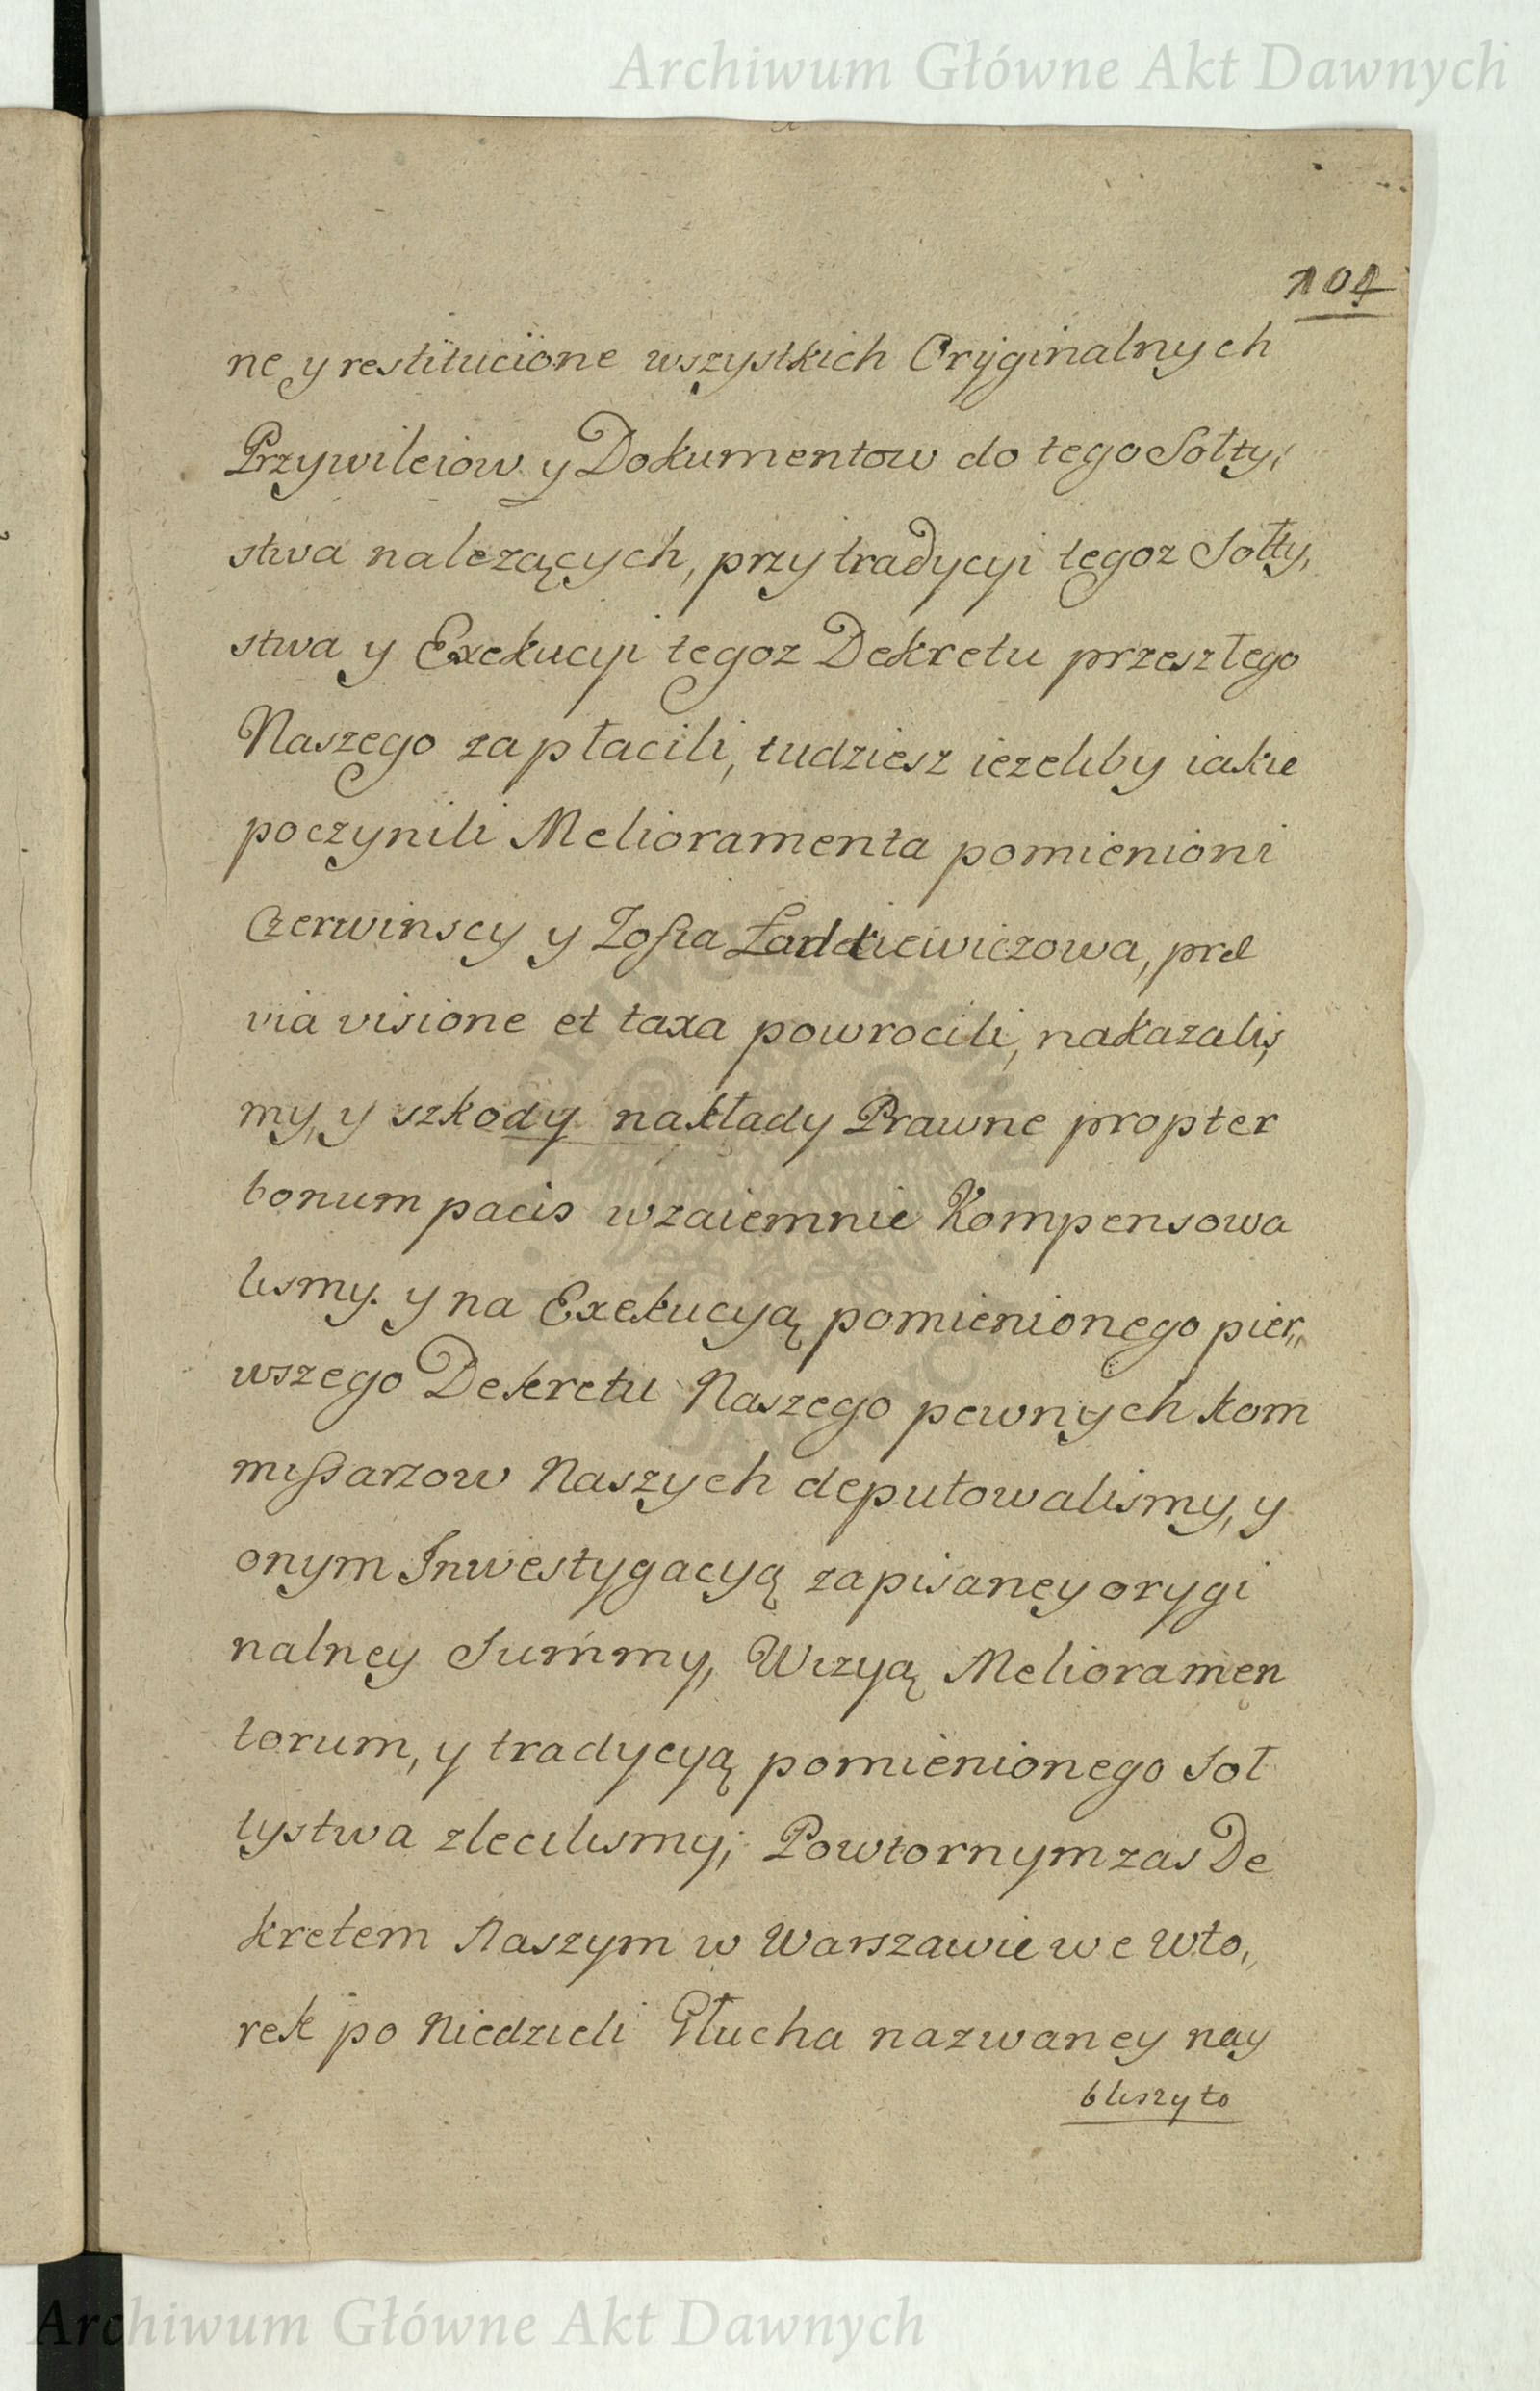 Archiwum Główne Akt Dawnych
101
ne y restitucione wszystkich Oryginalnych
Przywileiow y Dokumentow do tego Sołty,
stwa nalezących, przy tradycyi tegoz Sołty,
stwa y Exekucyi tegoz Dekretu przeszłego
Naszego zapłacili, tudziesz iezeliby iakie
poczynili Melioramenta pomienioni
Czerwinscy y Zofia, præ
via visione et taxa powrocili, nakazaliś
my, y szkody nakłady Prawne propter
bonum pacis wzaiemnie Kompensowa
lismy. y na Exekucyą pomienionego pier,,
wszego Dekretu Naszego pewnych kom
missarzow Naszych deputowalismy, y
onym Inwestygacyą zapisaney orygi
nalney Summy, Wizyą Melioramen
torum, y tradycyą pomienionego Soł
tystwa zlecilismy; Powtornym zas De
kretem Naszym w Warszawie we Wto,,
rek po Niedzieli Głucha nazwaney nay
bliszy to
Archiwum Główne Akt Dawnych